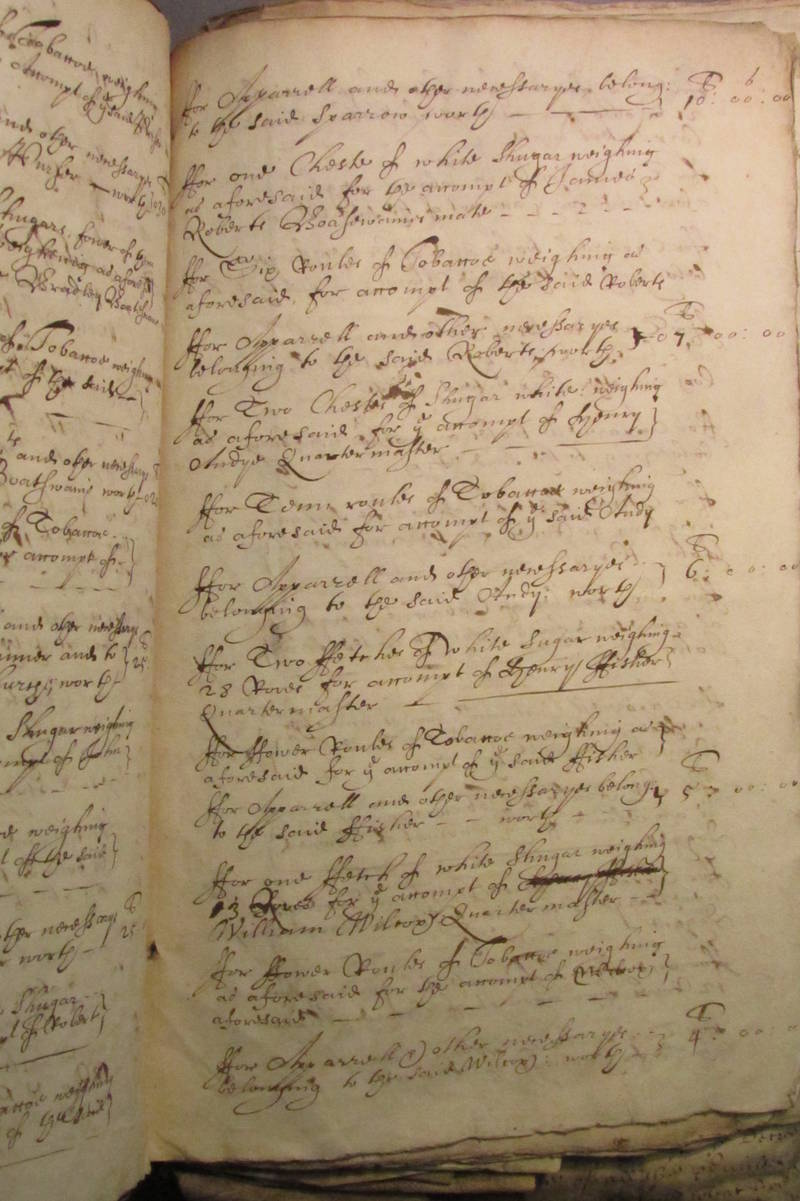 Tobaccoe weighing
Accompt of ye said
and other necessarys
worth
Shugar
weighing as afores
Bradley
of Tobaccoe weighing
of the said
and other necessarys
Boatswains worth
of Tobaccoe
accompt of
and other necessarys
and to
worth
Shugar weighing
accompt of John
weighing
of the said
other necessarys
worth
Shugar
of Robert
Tobaccoe weighing
of the said
ffor Apparrell and other necessaryes belong: 10: 00: 00
to the said Sparrow worth
ffor one Cheste of white Shugar weighing
as aforesaid for the accompt of James
Roberts Boatswaines mate
ffor Six Roules of Tobaccoe weighing as
aforesaid for accompt of the said Roberts
ffor Apparrell and other necessaryes 07 00: 00
belonging to the said Roberts worth
ffor Two Chestes of Shugar white weighing
as aforesaid for ye accompt of Henry
Andye Quartermaster
ffor Tenn roules of Tobaccoe weighing
as aforesaid for accompt of ye said Andy
ffor Apparrell and other necessaryes 6: 00: 00
belonging to the said Andy: worth
ffor Two ffetches of white Sugar weighing
28 Roves for accompt of Henry ffisher
Quartermaster
ffor ffower Roules of Tobaccoe weighing as
aforesaid for ye accompt of ye said ffisher
ffor Apparrell and other necessaryes belong: 5 00: 00
to the said ffisher worth
ffor one ffetch of white Shugar weighing
13 Roves for ye accompt of
William Wilcox Quartermaster
ffor ffower Roules of Tobaccoe weighing
as aforesaid for the accompt of Wilcox
aforesaid
ffor Apparrell & other necessaryes 4: 00: 00
belonging to the said Wilcox: worth